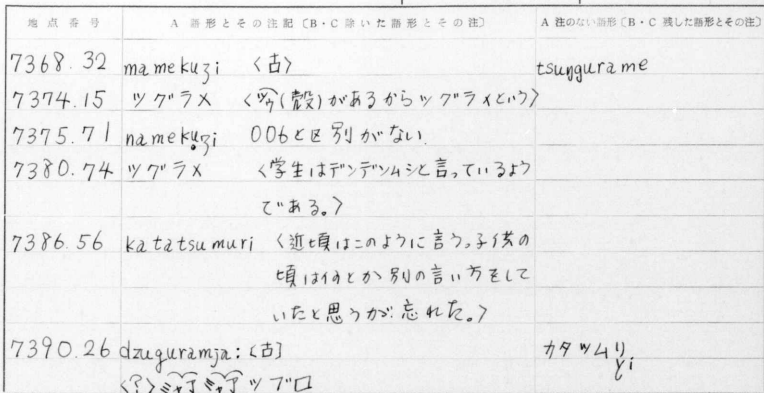 地点番号 A 語形とその注記〔B・C 除いた語形とその注〕 A 注のない語形〔B・C 残した語形とその注〕
7368.32 mamekuʒi 〈古〉 tsuŋgurame
7374.15 ツグラメ 〈ツウ(殻)があるからツグラメという〉
7375.71 namekuʒi 006と区別がない。
7380.74 ツグラメ 〈学生はデンデンムシと言っているよう
である。〉
7386.56 katatsumuri 〈近頃はこのように言う。子供の
頃は何とか別の言い方をして
いたと思うが忘れた。〉
7390.26 dzuguramja: 〈古〉 カタツムリ
〈?〉ミャアミャアツブロ